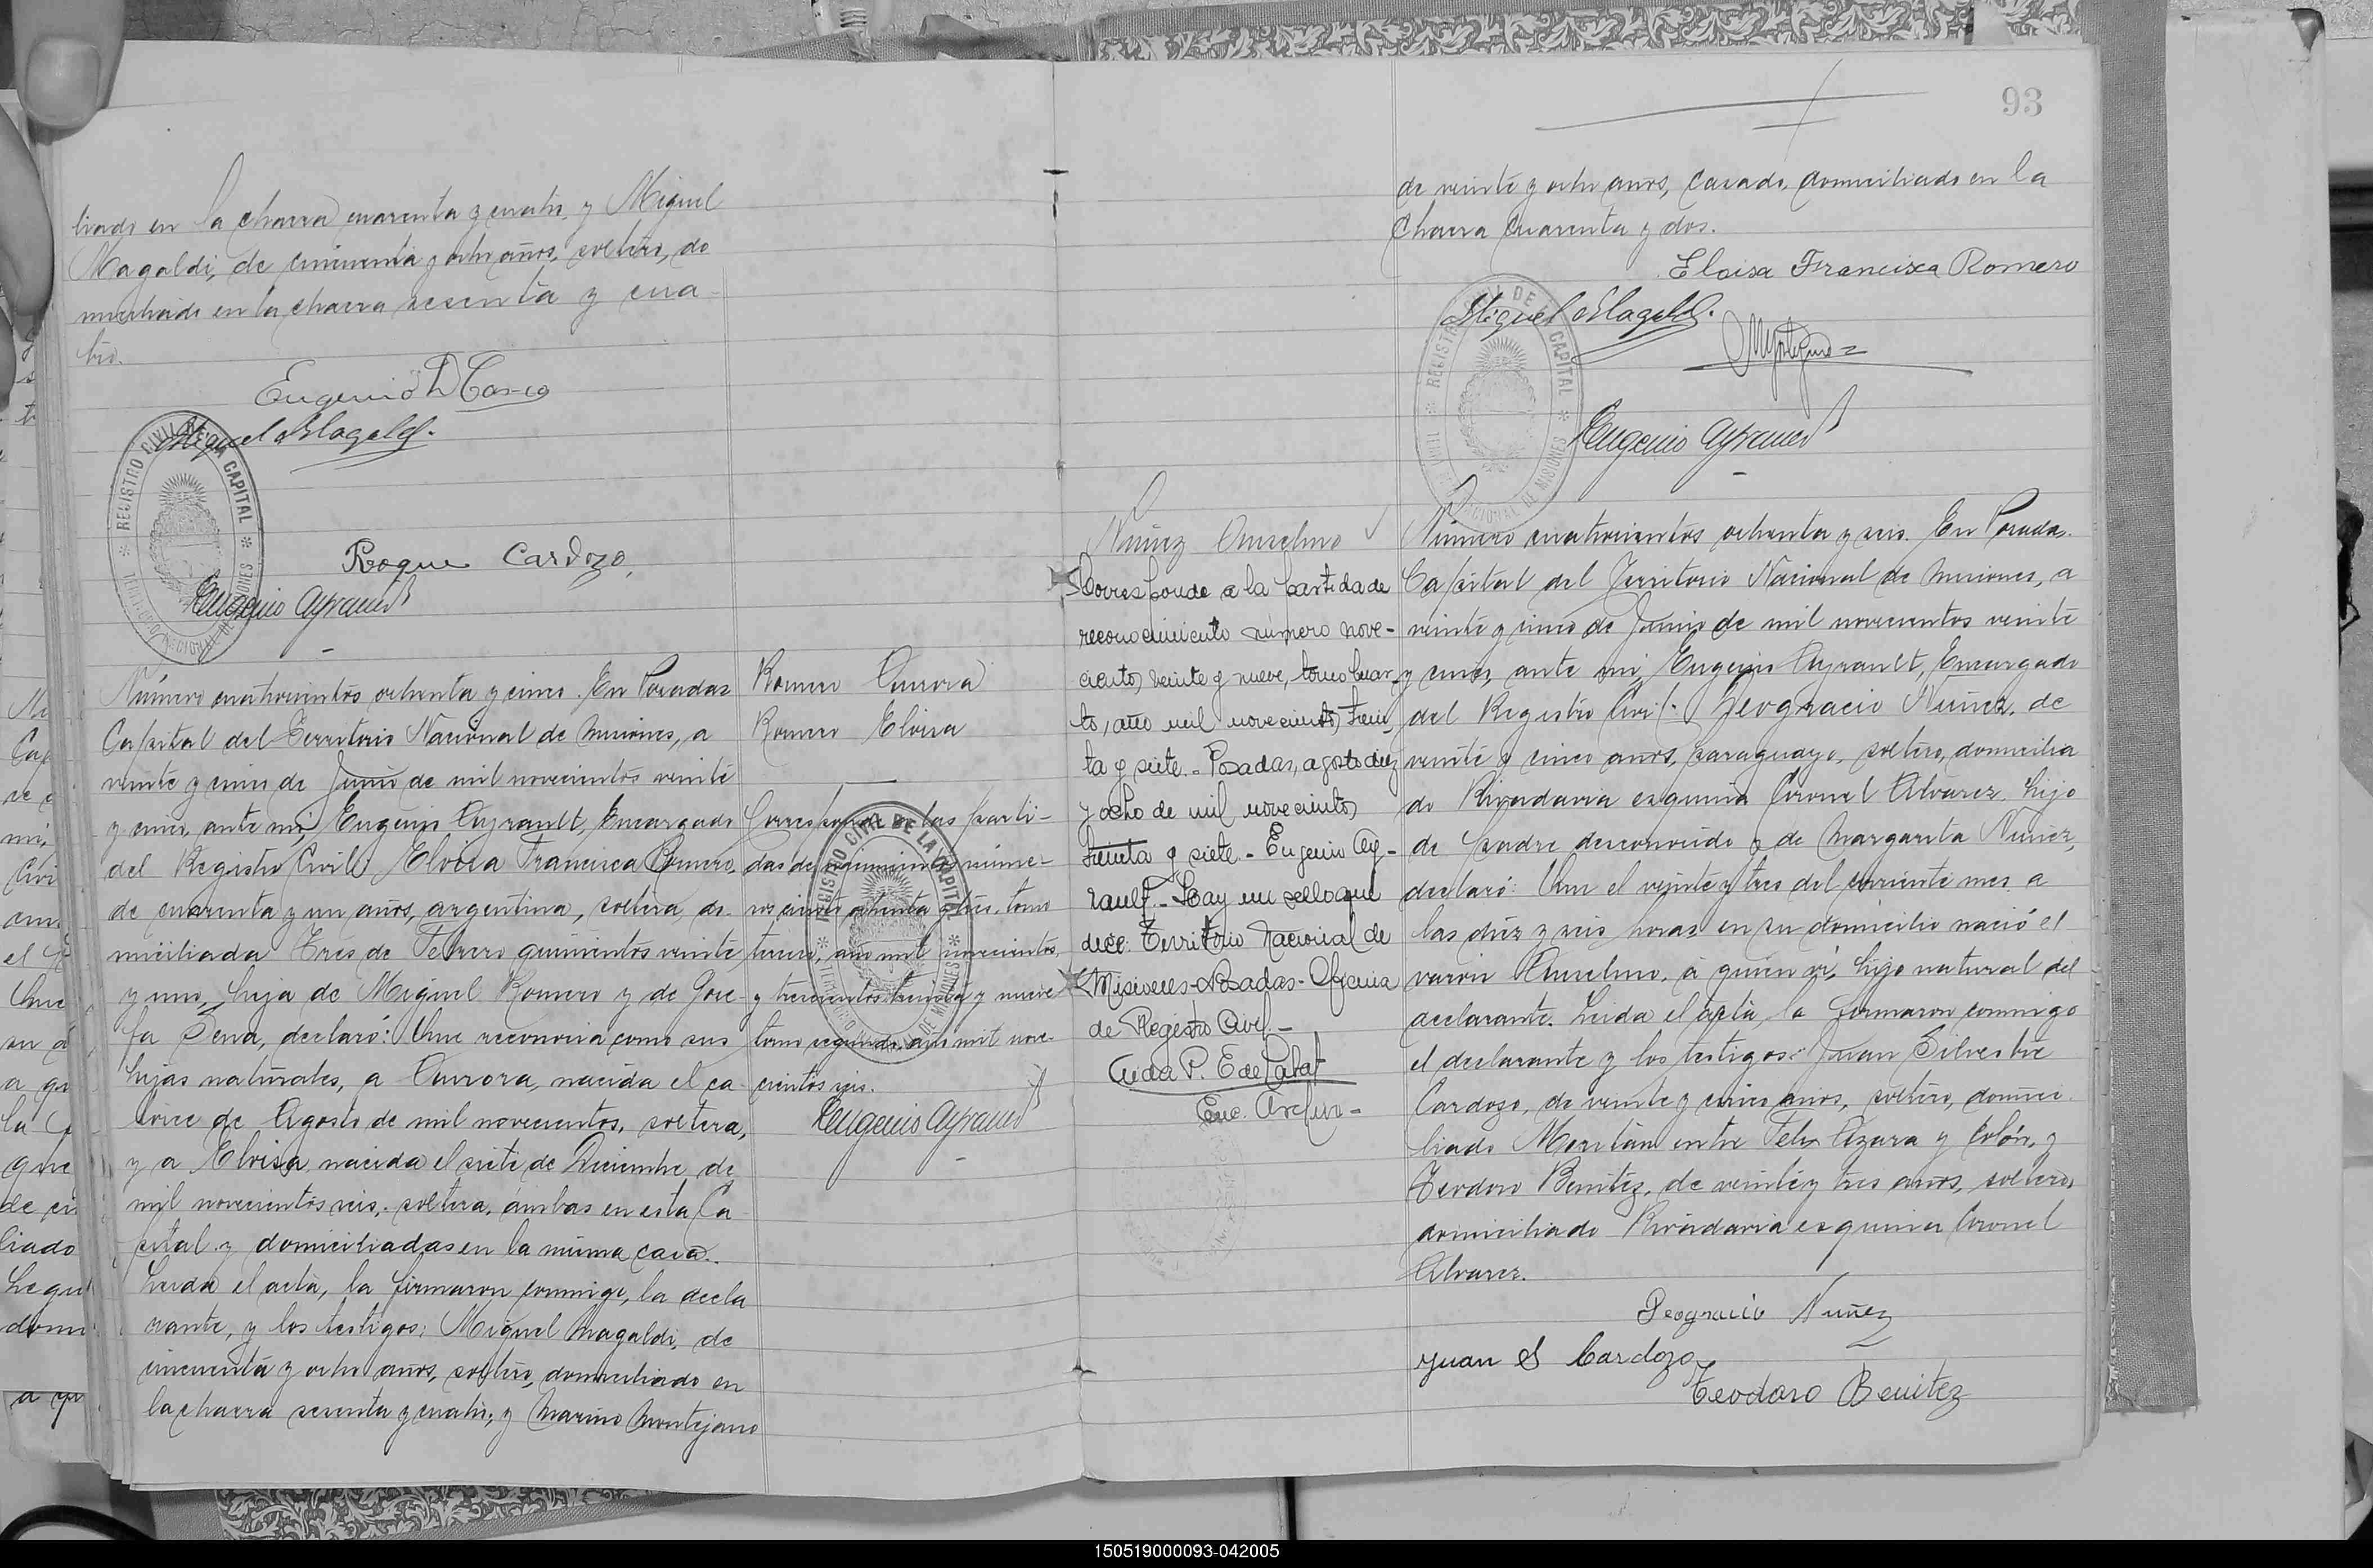 liado en la chacra cuarenta y cuatro, y Miguel
Magaldi, de cincuenta y ocho años, soltero, do
miciliado en la chacra sesenta y cua-
tro.
Eugenio D Casco
Miguel Magaldi.
REGISTRO CIVIL DE LA CAPITAL
Roque Cardozo,
Eugenio Ayrault
Número cuatrocientos ochenta y cinco. En Posadas
Capital del Territorio Nacional de Misiones, a
veinte y cinco de Junio de mil novecientos veinte
y cinco, ante mí, Eugenio Ayrault, Encargado
del Registro Civil: Eloisa Francisca Romero,
de cuarenta y un años, argentina, soltera, do-
miciliada Tres de Febrero quinientos veinte
y uno, hija de Miguel Romero y de Jose-
fa Sena, declaró: Que reconocia como sus
hijas naturales, a Aurora, nacida el ca
torce de Agosto de mil novecientos, soltera,
y a Eloisa nacida el siete de Diciembre de
mil novecientos seis, soltera, ambas en esta Ca
pital y domiciliadas en la misma casa.
Leida el acta, la firmaron conmigo, la decla
rante, y los testigos: Miguel Magaldi, de
cincuenta y ocho años, soltero, domiciliado en
la chacra sesenta y cuatro; y Marino Montejano
Romero Aurora
Romero Eloisa
Corresponde a las parti-
das de nacimientos núme-
ros ciento ochenta y tres, tomo
tercero, año mil novecientos,
y trescientos treinta y nueve
tomo segundo, año mil nove-
cientos seis.
Eugenio Ayrault
REGISTRO CIVIL DE LA CAPITAL
93
de veinte y ocho años, casado, domiciliado en la
chacra cuarenta y dos.
Eloisa Francisca Romero
Miguel Magaldi.
Eugenio Ayrault
REGISTRO CIVIL DE LA CAPITAL
Núñez Anselmo
Corresponde a la partida de
reconocimiento número nove-
cientos veinte y nueve, tomo cuar-
to, año mil novecientos trein
ta y siete. - Posadas, agosto diez
y ocho de mil novecientos
treinta y siete. - Eugenio Ay-
rault. - Hay un sello que
dice: Territorio Nacional de
Misiones - Posadas - Oficina
de Registro Civil. -
Enc. Archivo -
Número cuatrocientos ochenta y seis. En Posadas
Capital del Territorio Nacional de Misiones, a
veinte y cinco de Junio de mil novecientos veinte
y cinco, ante mí, Eugenio Ayrault, Encargado
del Registro Civil: Deogracio Núñez, de
veinte y cinco años, paraguayo, soltero, domicilia
do Rivadavia esquina Coronel Alvarez, hijo
de padre desconocido y de Margarita Núñez,
declaró: Que el veinte y tres del corriente mes a
las diez y seis horas en su domicilio nació el
varón Anselmo, a quien ví, hijo natural del
declarante. Leida el acta, la firmaron conmigo
el declarante y los testigos: Juan Silvestre
Cardozo, de veinte y cinco años, soltero, domici
liado Meritán entre Felix Azara y Colón, y
Teodoro Benitez, de veinte y tres años, soltero,
domiciliado Rivadavia esquina Coronel
Alvarez.
Deogracio Nuñez
Juan S Cardozo
Teodoro Benitez
150519000093-042005